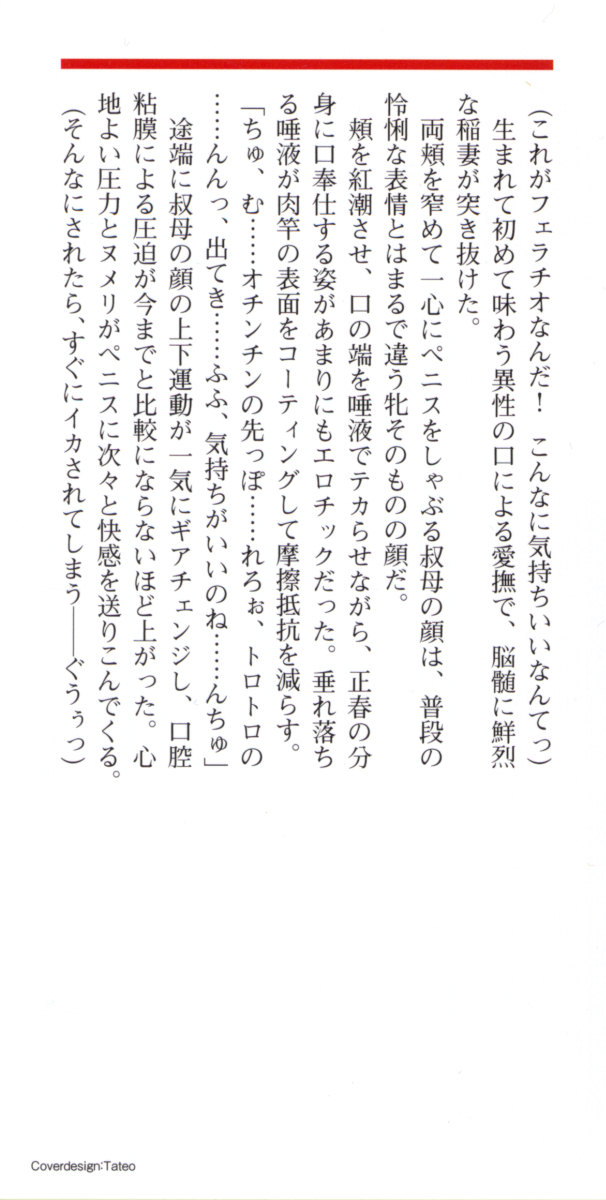 （これがフェラチオなんだ！　こんなに気持ちいいなんてっ）
　生まれて初めて味わう異性の口による愛撫で、脳髄に鮮烈
な稲妻が突き抜けた。
　両頬を窄めて一心にペニスをしゃぶる叔母の顔は、普段の
怜悧な表情とはまるで違う牝そのものの顔だ。
　頬を紅潮させ、口の端を唾液でテカらせながら、正春の分
身に口奉仕する姿があまりにもエロチックだった。垂れ落ち
る唾液が肉竿の表面をコーティングして摩擦抵抗を減らす。
「ちゅ、む……オチンチンの先っぽ……れろぉ、トロトロの
……んんっ、出てき……ふふ、気持ちがいいのね……んちゅ」
　途端に叔母の顔の上下運動が一気にギアチェンジし、口腔
粘膜による圧迫が今までと比較にならないほど上がった。心
地よい圧力とヌメリがペニスに次々と快感を送りこんでくる。
（そんなにされたら、すぐにイカされてしまう――ぐうぅっ）
Coverdesign:Tateo